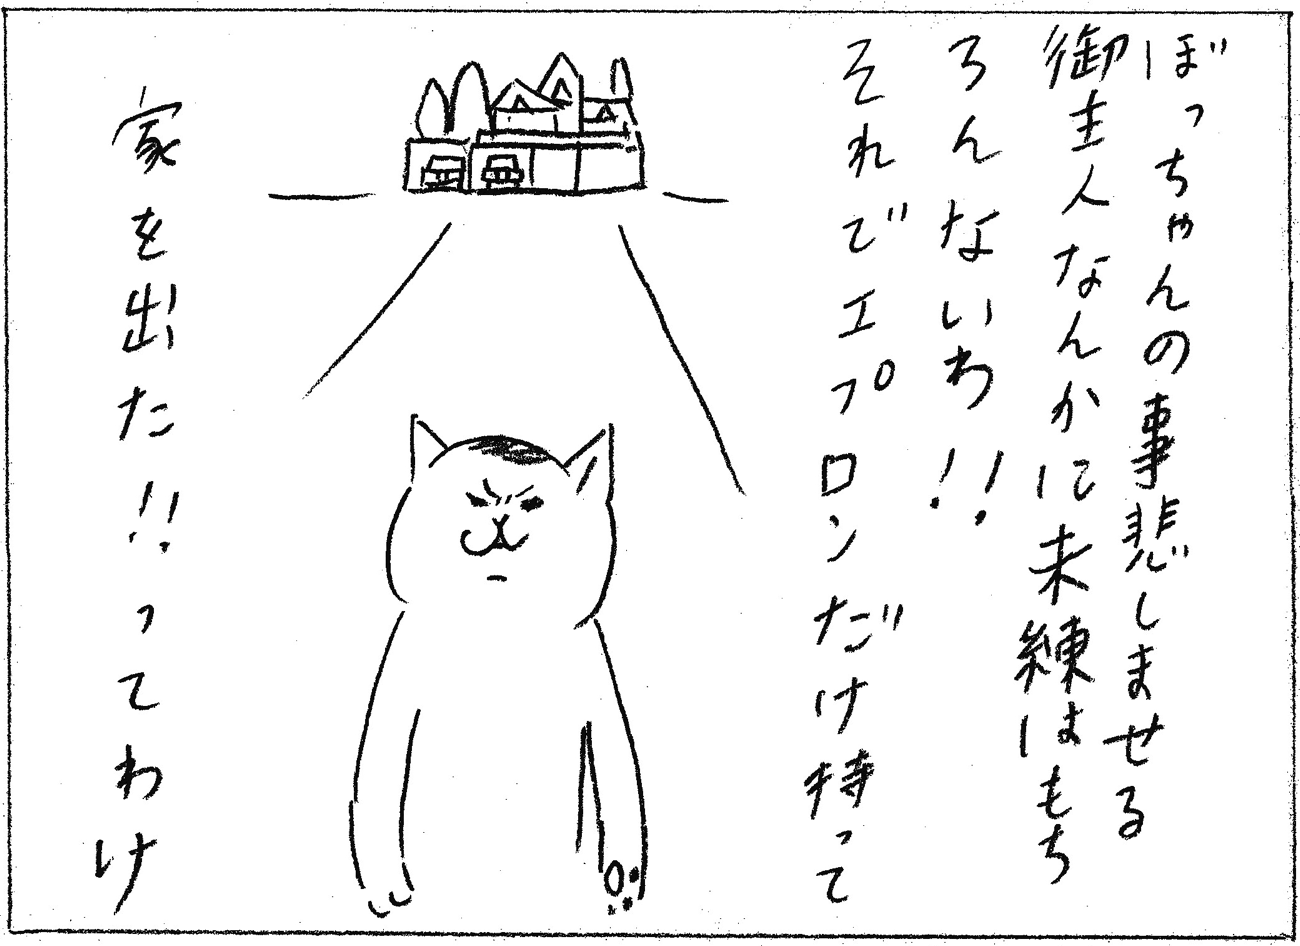 ぼっちゃんの事悲しませる
御主人なんかに未練はもち
ろんないわ!!
それでエプロンだけ持って
家を出た!!ってわけ